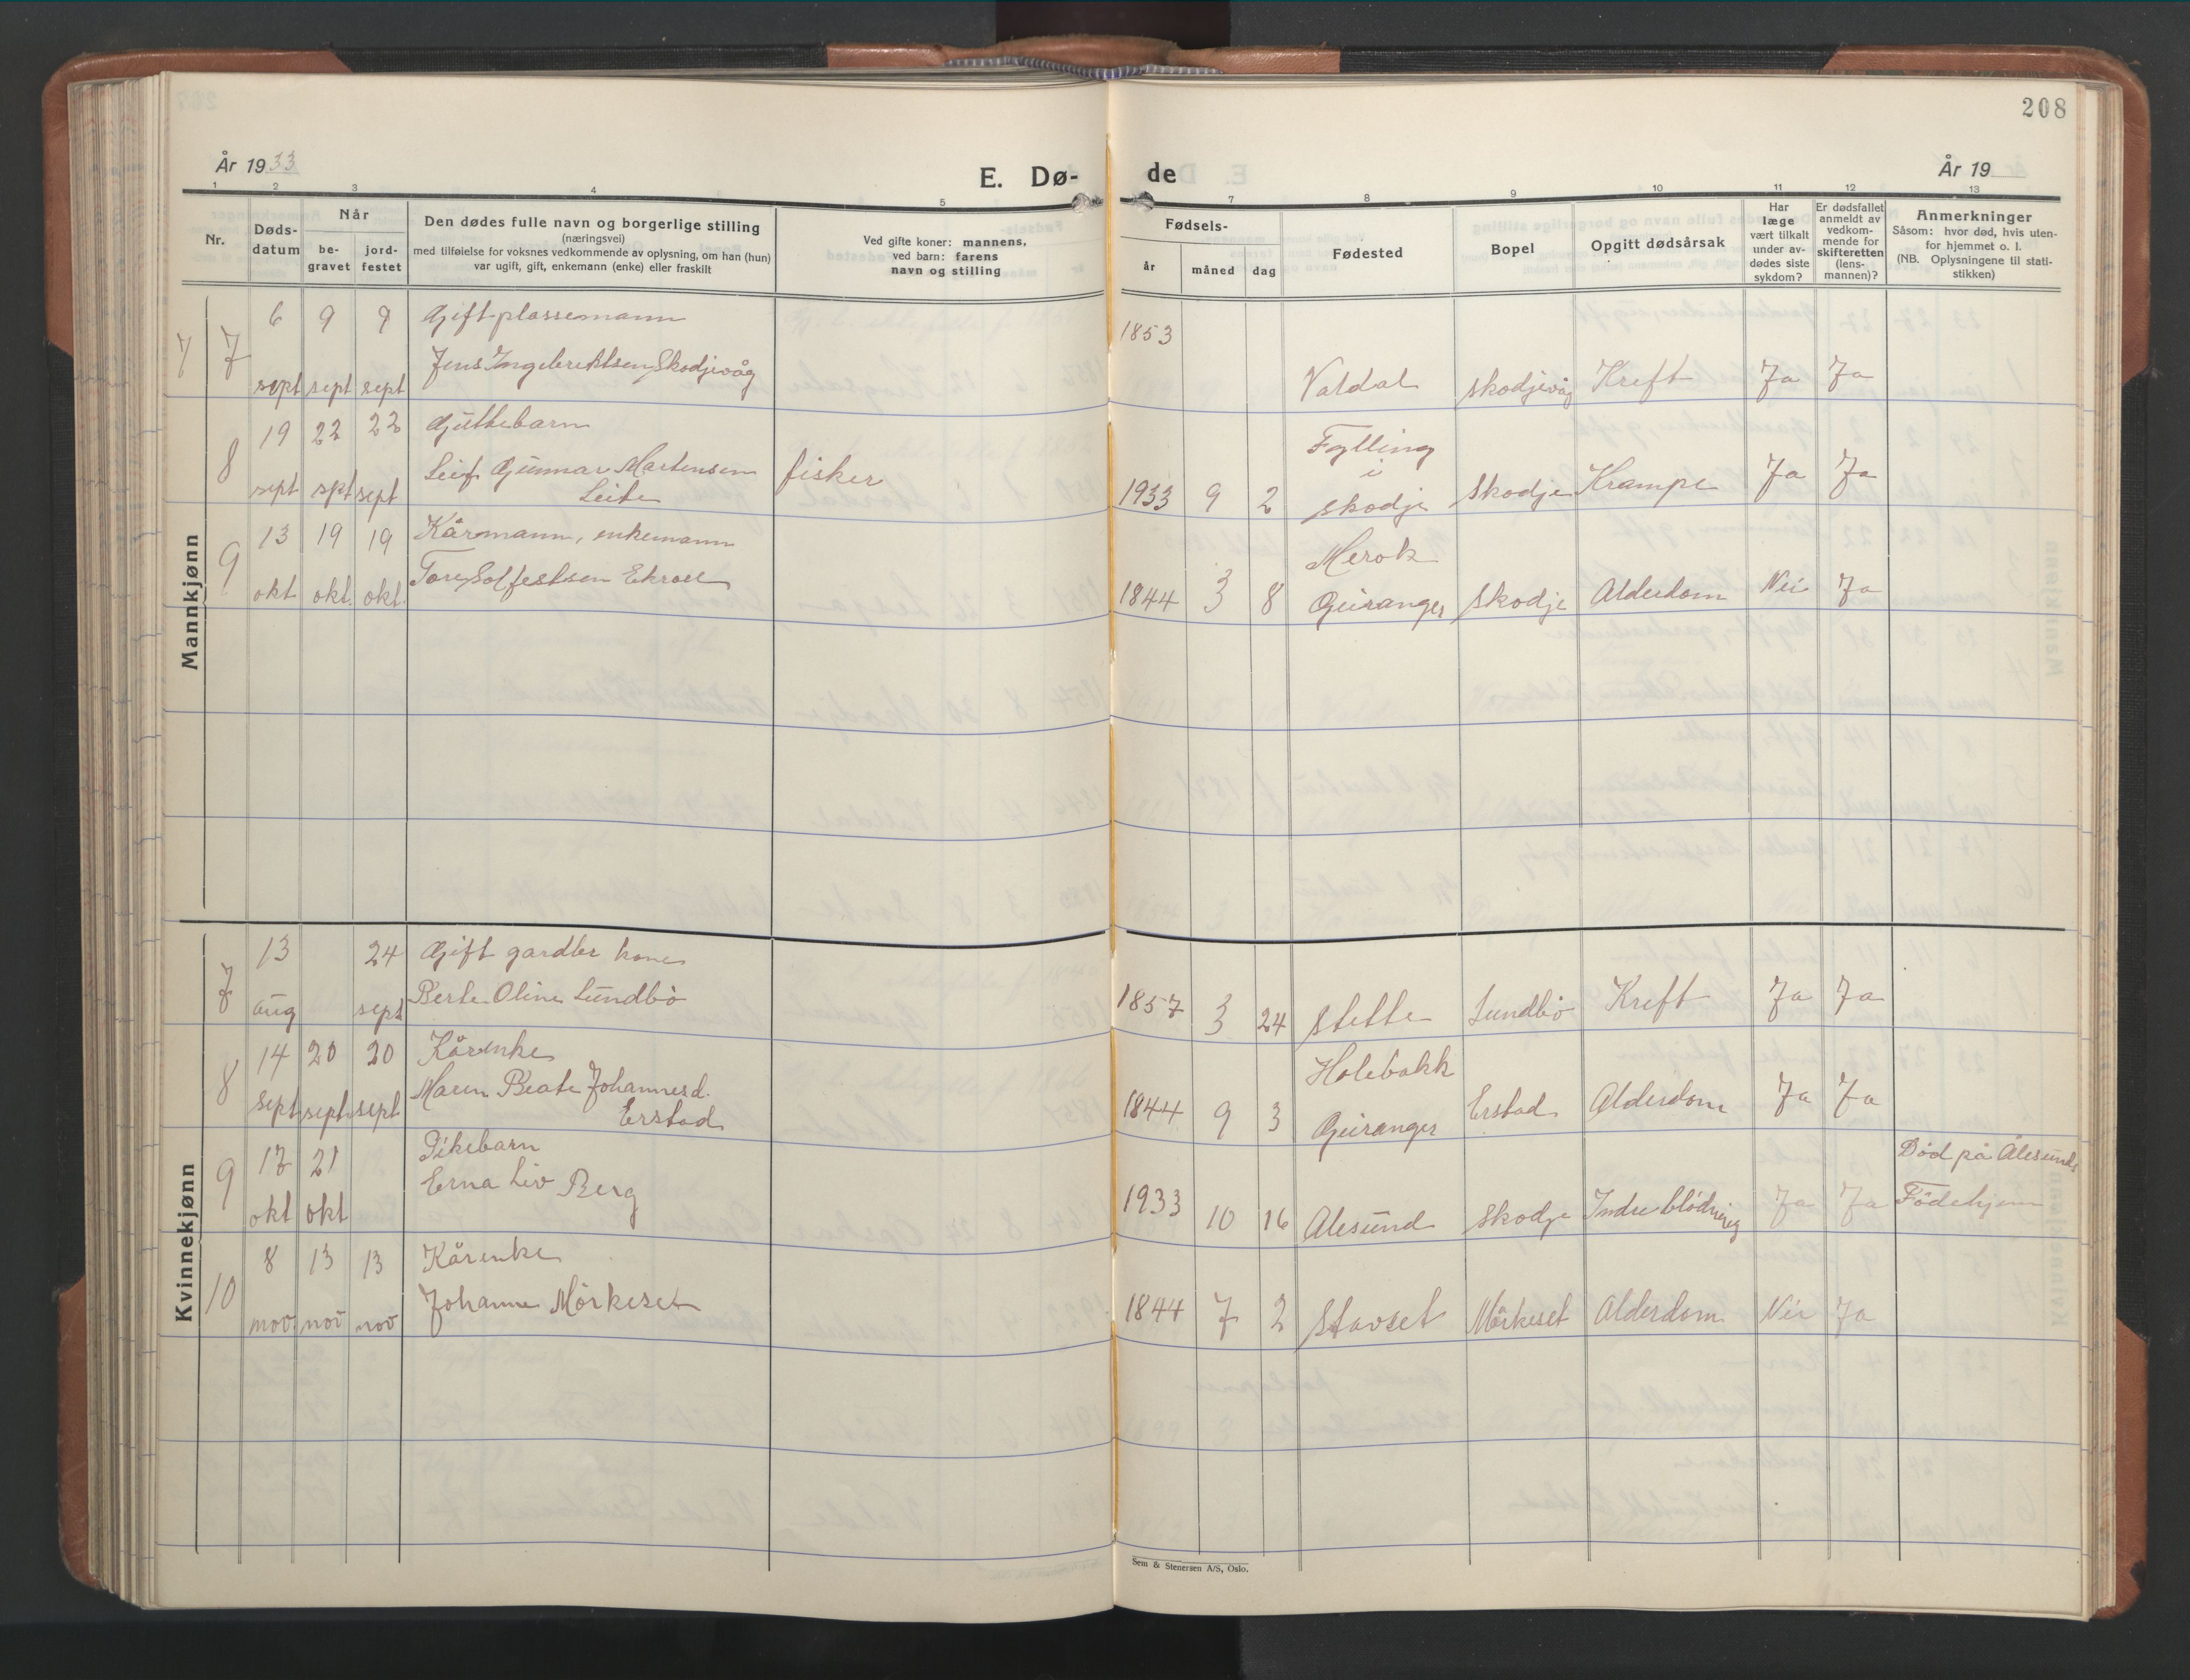 208
År 1933
E. Dø-
de
År 19
1 2 3 4 5 7 8 9 10 11 12 13
Nr.
Døds-
datum
Når
be-
gravet
jord-
festet
Den dødes fulle navn og borgerlige stilling
(næringsvei)
med tilføielse for voksnes vedkommende av oplysning, om han (hun)
var ugift, gift, enkemann (enke) eller fraskilt
Ved gifte koner: mannens,
ved barn: farens
navn og stilling
Fødsels-
år
måned
dag
Fødested
Bopel
Opgitt dødsårsak
Har
læge
vært tilkalt
under av-
dødes siste
sykdom?
Er dødsfallet
anmeldt av
vedkom-
mende for
skifteretten
(lens-
mannen)?
Anmerkninger
Såsom: hvor død, hvis uten-
for hjemmet o. l.
(NB. Oplysningene til stati-
stikken)
Mannkjønn
7 7 6 9 9 Gift plassemann 1853
sept sept sept Jens Ingebrektsen Skodjevåg Valdal Skodjevåg Kreft Ja Ja
8 19 22 22 Guttebarn Fylling
sept spt sept Leif Gunnar Martensen fisker i
Leite 1933 9 2 Skodje Skodje Krampe Ja Ja
9 13 19 19 Kårmann, enkemann Merok
okt okt. okt. Tore Solfestsen Ekroll 1844 3 8 Geiranger Skodje Alderdom Nei Ja
Kvinnekjønn
7 13 24 Gift gardbr kone
aug sept Berte Oline Lundbö 1857 3 24 Stette Lundbö Kreft Ja Ja
8 14 20 20 Kårenke Holebakk
sept sept. sept Maren Beate Johannesd.
Erstad 1844 9 3 Geiranger Erstad Alderdom Ja Ja
9 17 21 Pikebarn Död på Ålesunds
okt okt Erna Liv Berg 1933 10 16 Ålesund Skodje Indre blödning Ja Ja Födehjem
10 8 13 13 Kårenke
nov nov nov Johanne Mörkeset 1844 7 2 Stavset Mörkeset Alderdom Nei Ja
Sem & Stenersen A/S, Oslo.